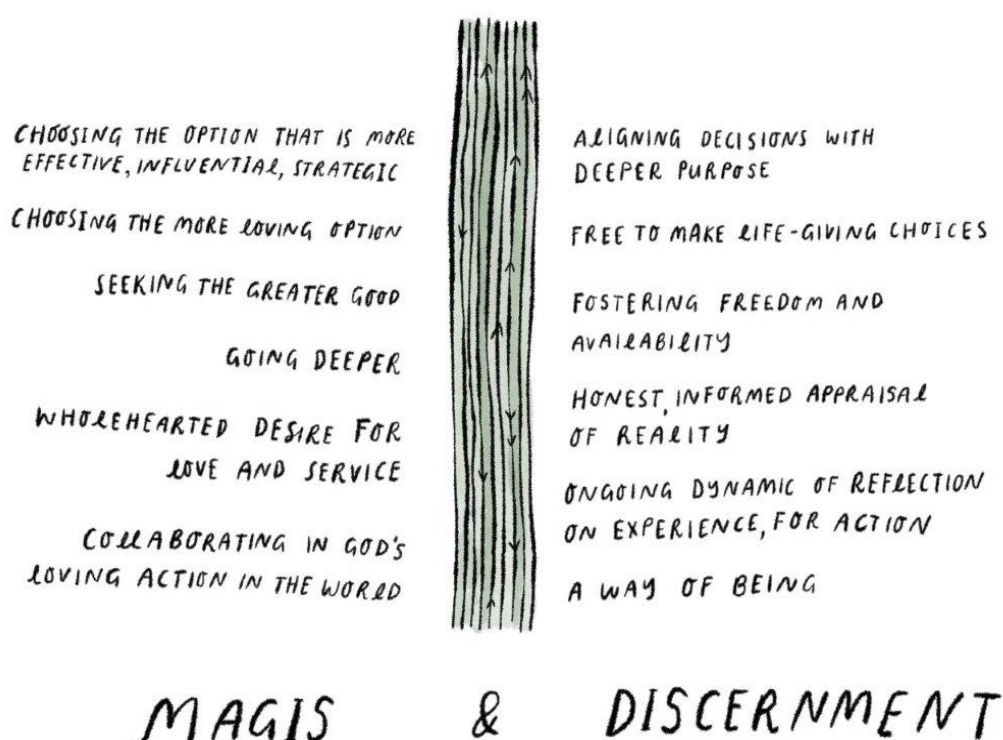 CHOOSING THE OPTION THAT IS MORE
EFFECTIVE, INFLUENTIAL, STRATEGIC
CHOOSING THE MORE LOVING OPTION
SEEKING THE GREATER GOOD
GOING DEEPER
WHOLEHEARTED DESIRE FOR
LOVE AND SERVICE
COLLABORATING IN GOD'S
LOVING ACTION IN THE WORLD
ALIGNING DECISIONS WITH
DEEPER PURPOSE
FREE TO MAKE LIFE-GIVING CHOICES
FOSTERING FREEDOM AND
AVAILABILITY
HONEST, INFORMED APPRAISAL
OF REALITY
ONGOING DYNAMIC OF REFLECTION
ON EXPERIENCE, FOR ACTION
A WAY OF BEING
MAGIS & DISCERNMENT